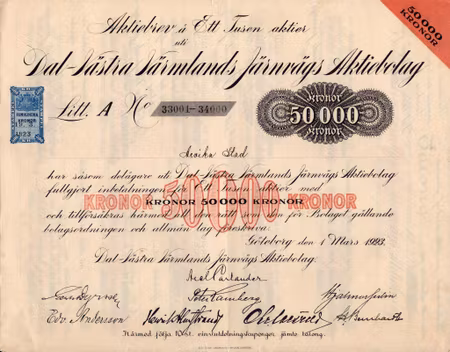 Aktiebrev å Ett Tusen aktier
uti
Dal-Västra Värmlands Järnvägs Aktiebolag
50 000
KRONOR
Litt. A No 33001–34000
kronor
50 000
kronor
1923
Arvika Stad
har såsom delägare uti Dal-Västra Värmlands Järnvägs Aktiebolag
fullgjort inbetalningen för Ett Tusen aktier med
KRONOR 50 000 KRONOR
KRONOR 50 000 KRONOR
och tillförsäkras härmed den rätt som för Bolaget gällande
bolagsordningen och allmän lag föreskriva.
Göteborg den 1 Mars 1923.
Dal-Västra Värmlands Järnvägs Aktiebolag:
Axel Carlander
Edv. Andersson
Härmed följa 10 st. vinstutdelningskuponger jämte talong.